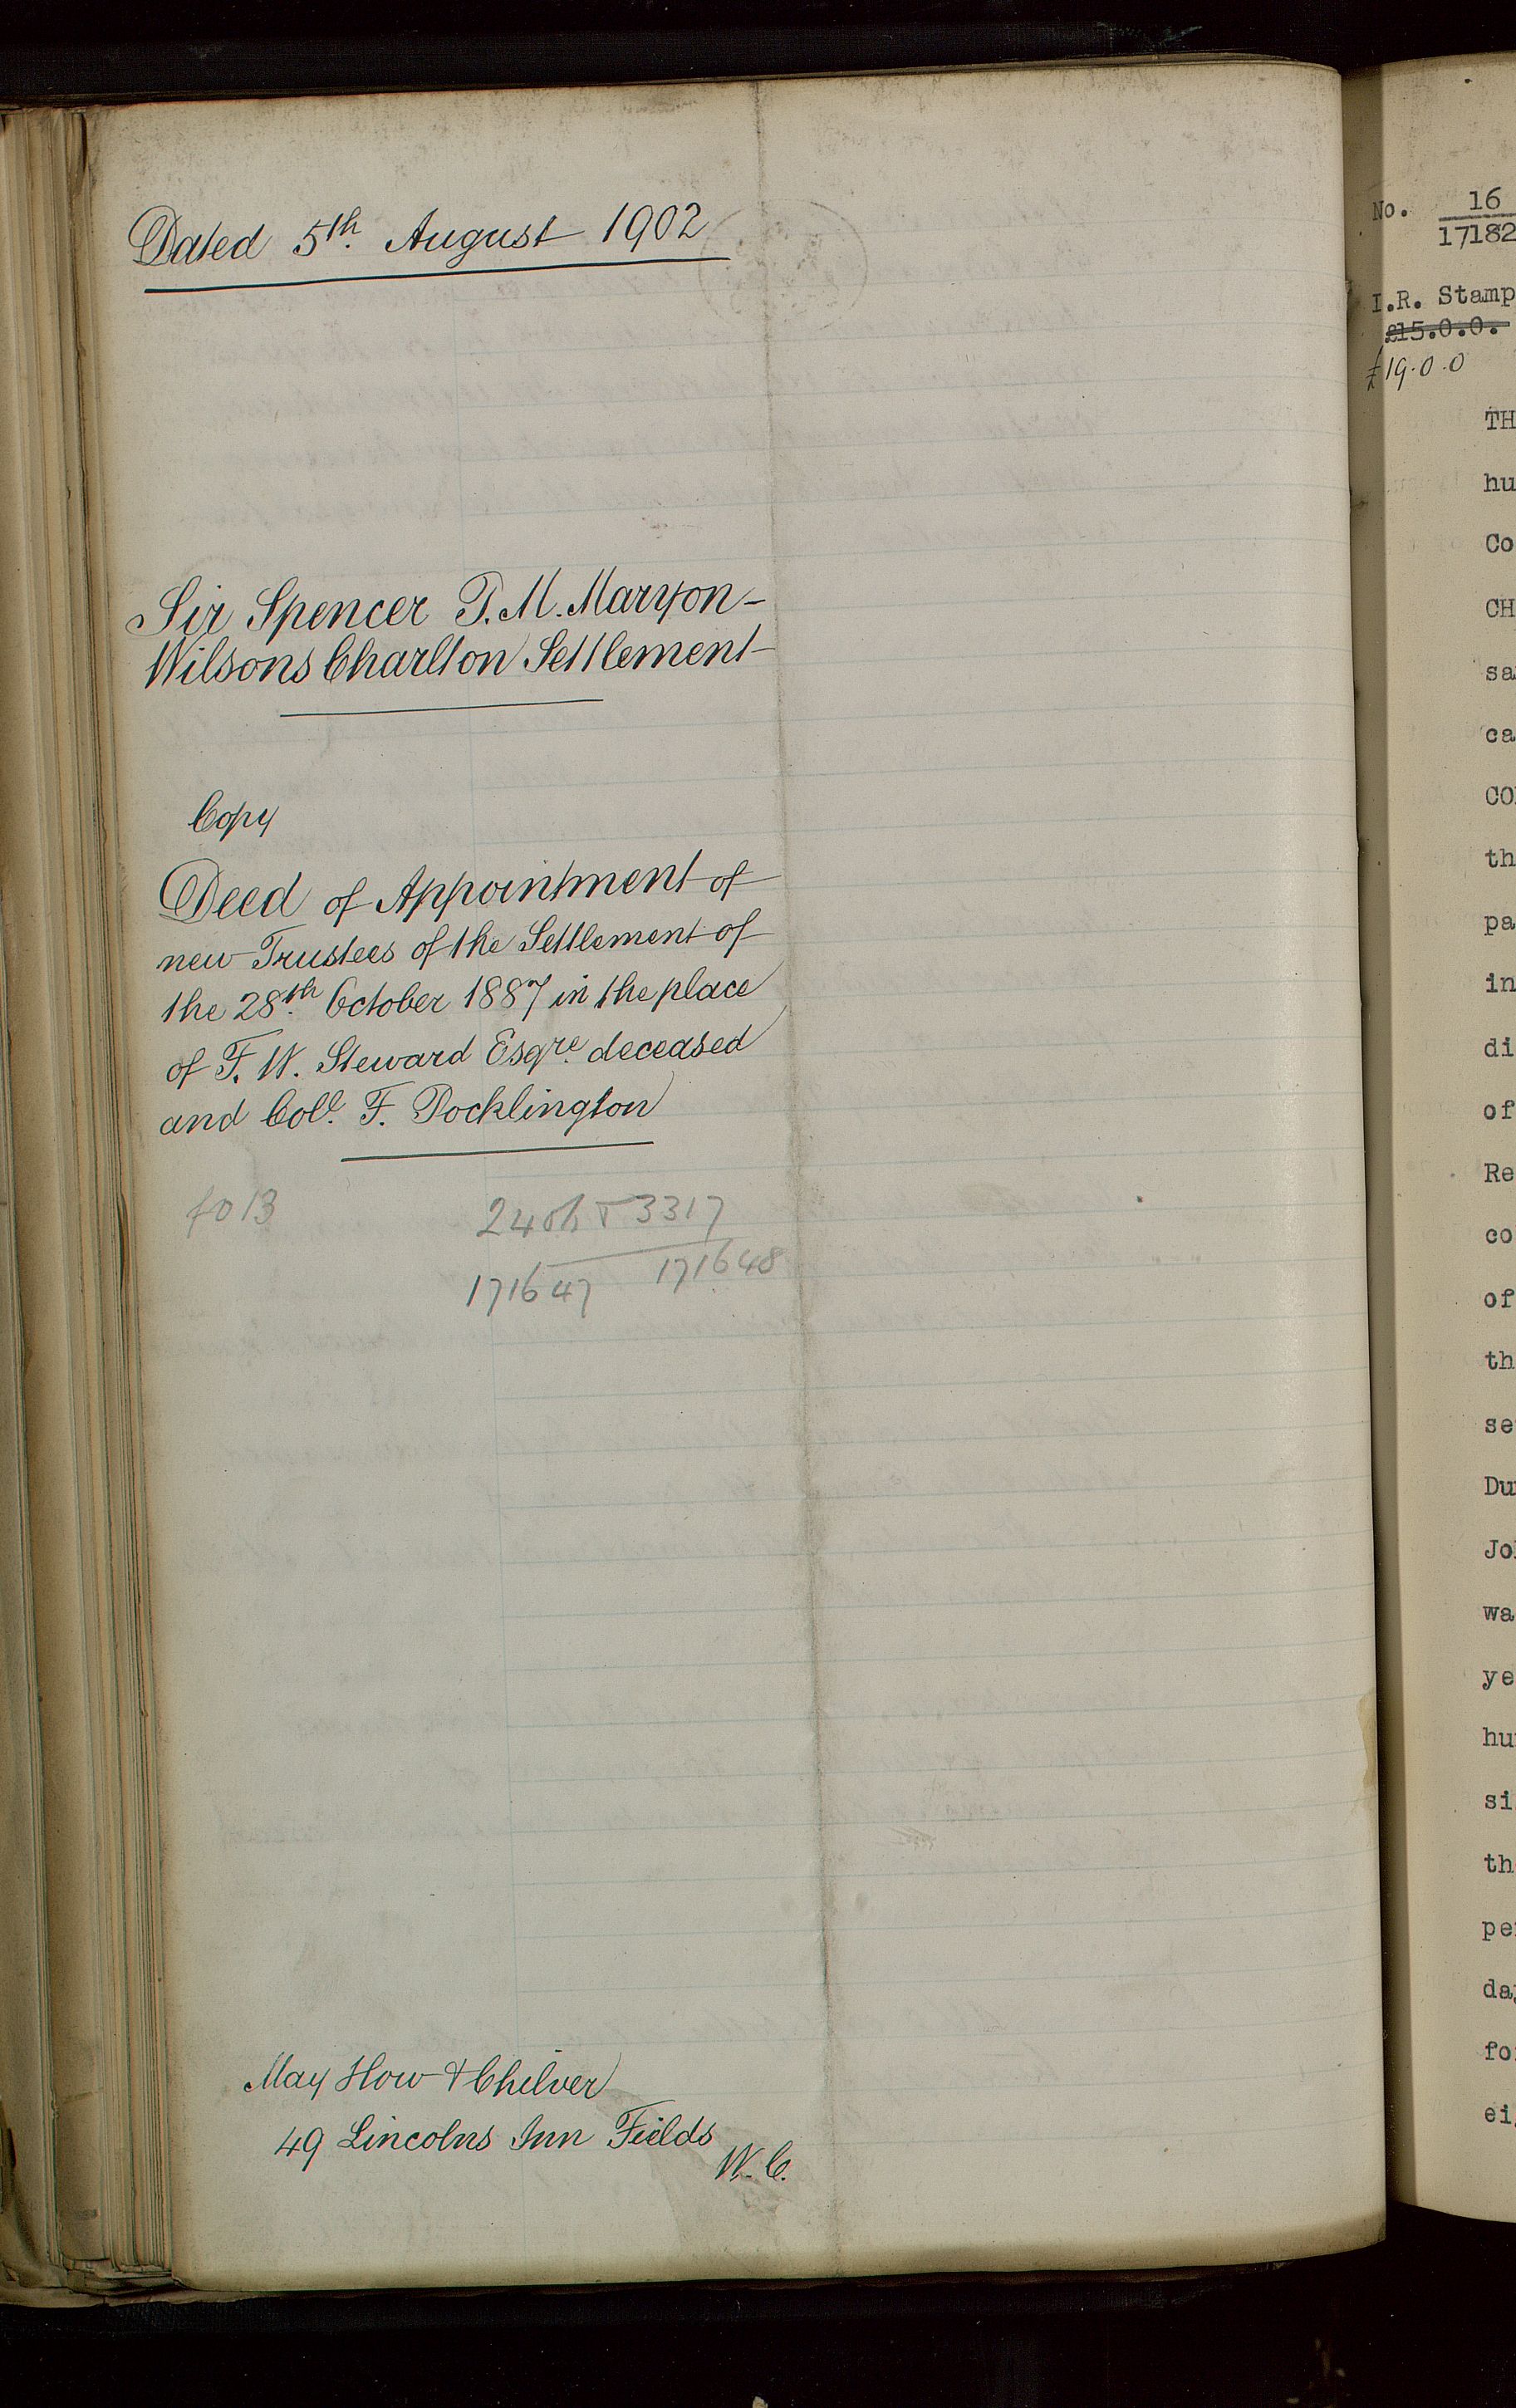 Dated 5th. August 1902
Sir Spencer P. M. Maryon-
Wilsons Charlton Settlement
Copy
Deed of Appointment of
new Trustees of the Settlement of
the 28th. October 1887 in the place
of F. W. Steward Esqre. deceased
and Coll. F. Pocklington
fo 13
3317
171647 171648
May How & Chilver
49 Lincolns Inn Fields
W. C.
No. 16
17182
I.R. Stamp
£15.0.0.
£19.0.0
TH
hu
Co
CH
sa
ca
CO
th
pa
in
di
of
Re
co
of
th
se
Du
Jo
wa
ye
hu
si
th
pe
da
fo
ei